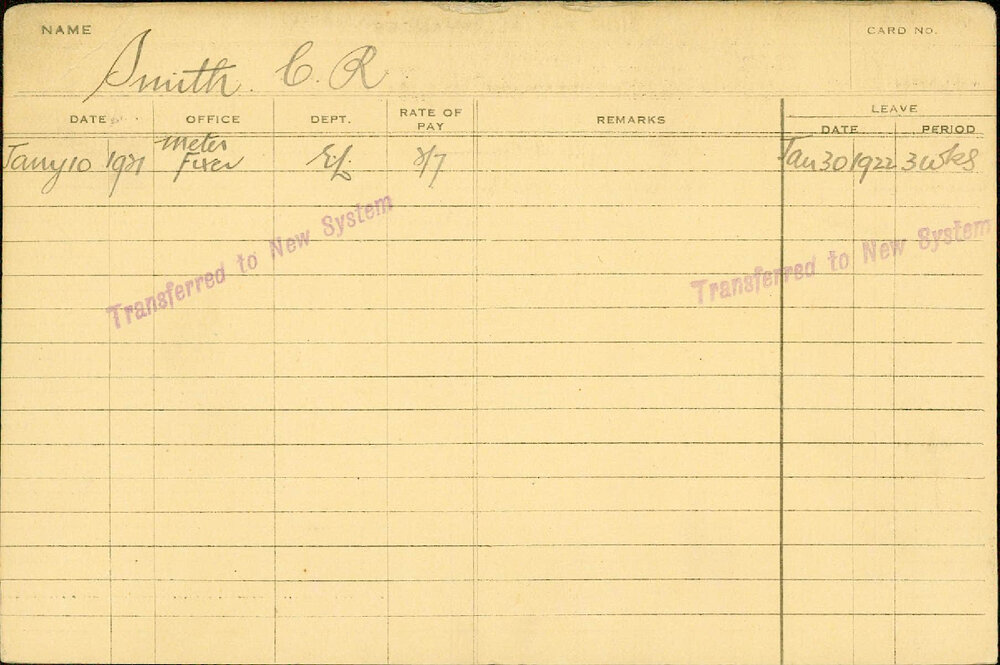 NAME
CARD NO.
Smith. C. R
DATE OFFICE DEPT. RATE OF PAY REMARKS LEAVE
DATE PERIOD
Jany 10 1921 Meter Fixer 2/7 Jan 30 1922 3 wks
Transferred to New System
Transferred to New System